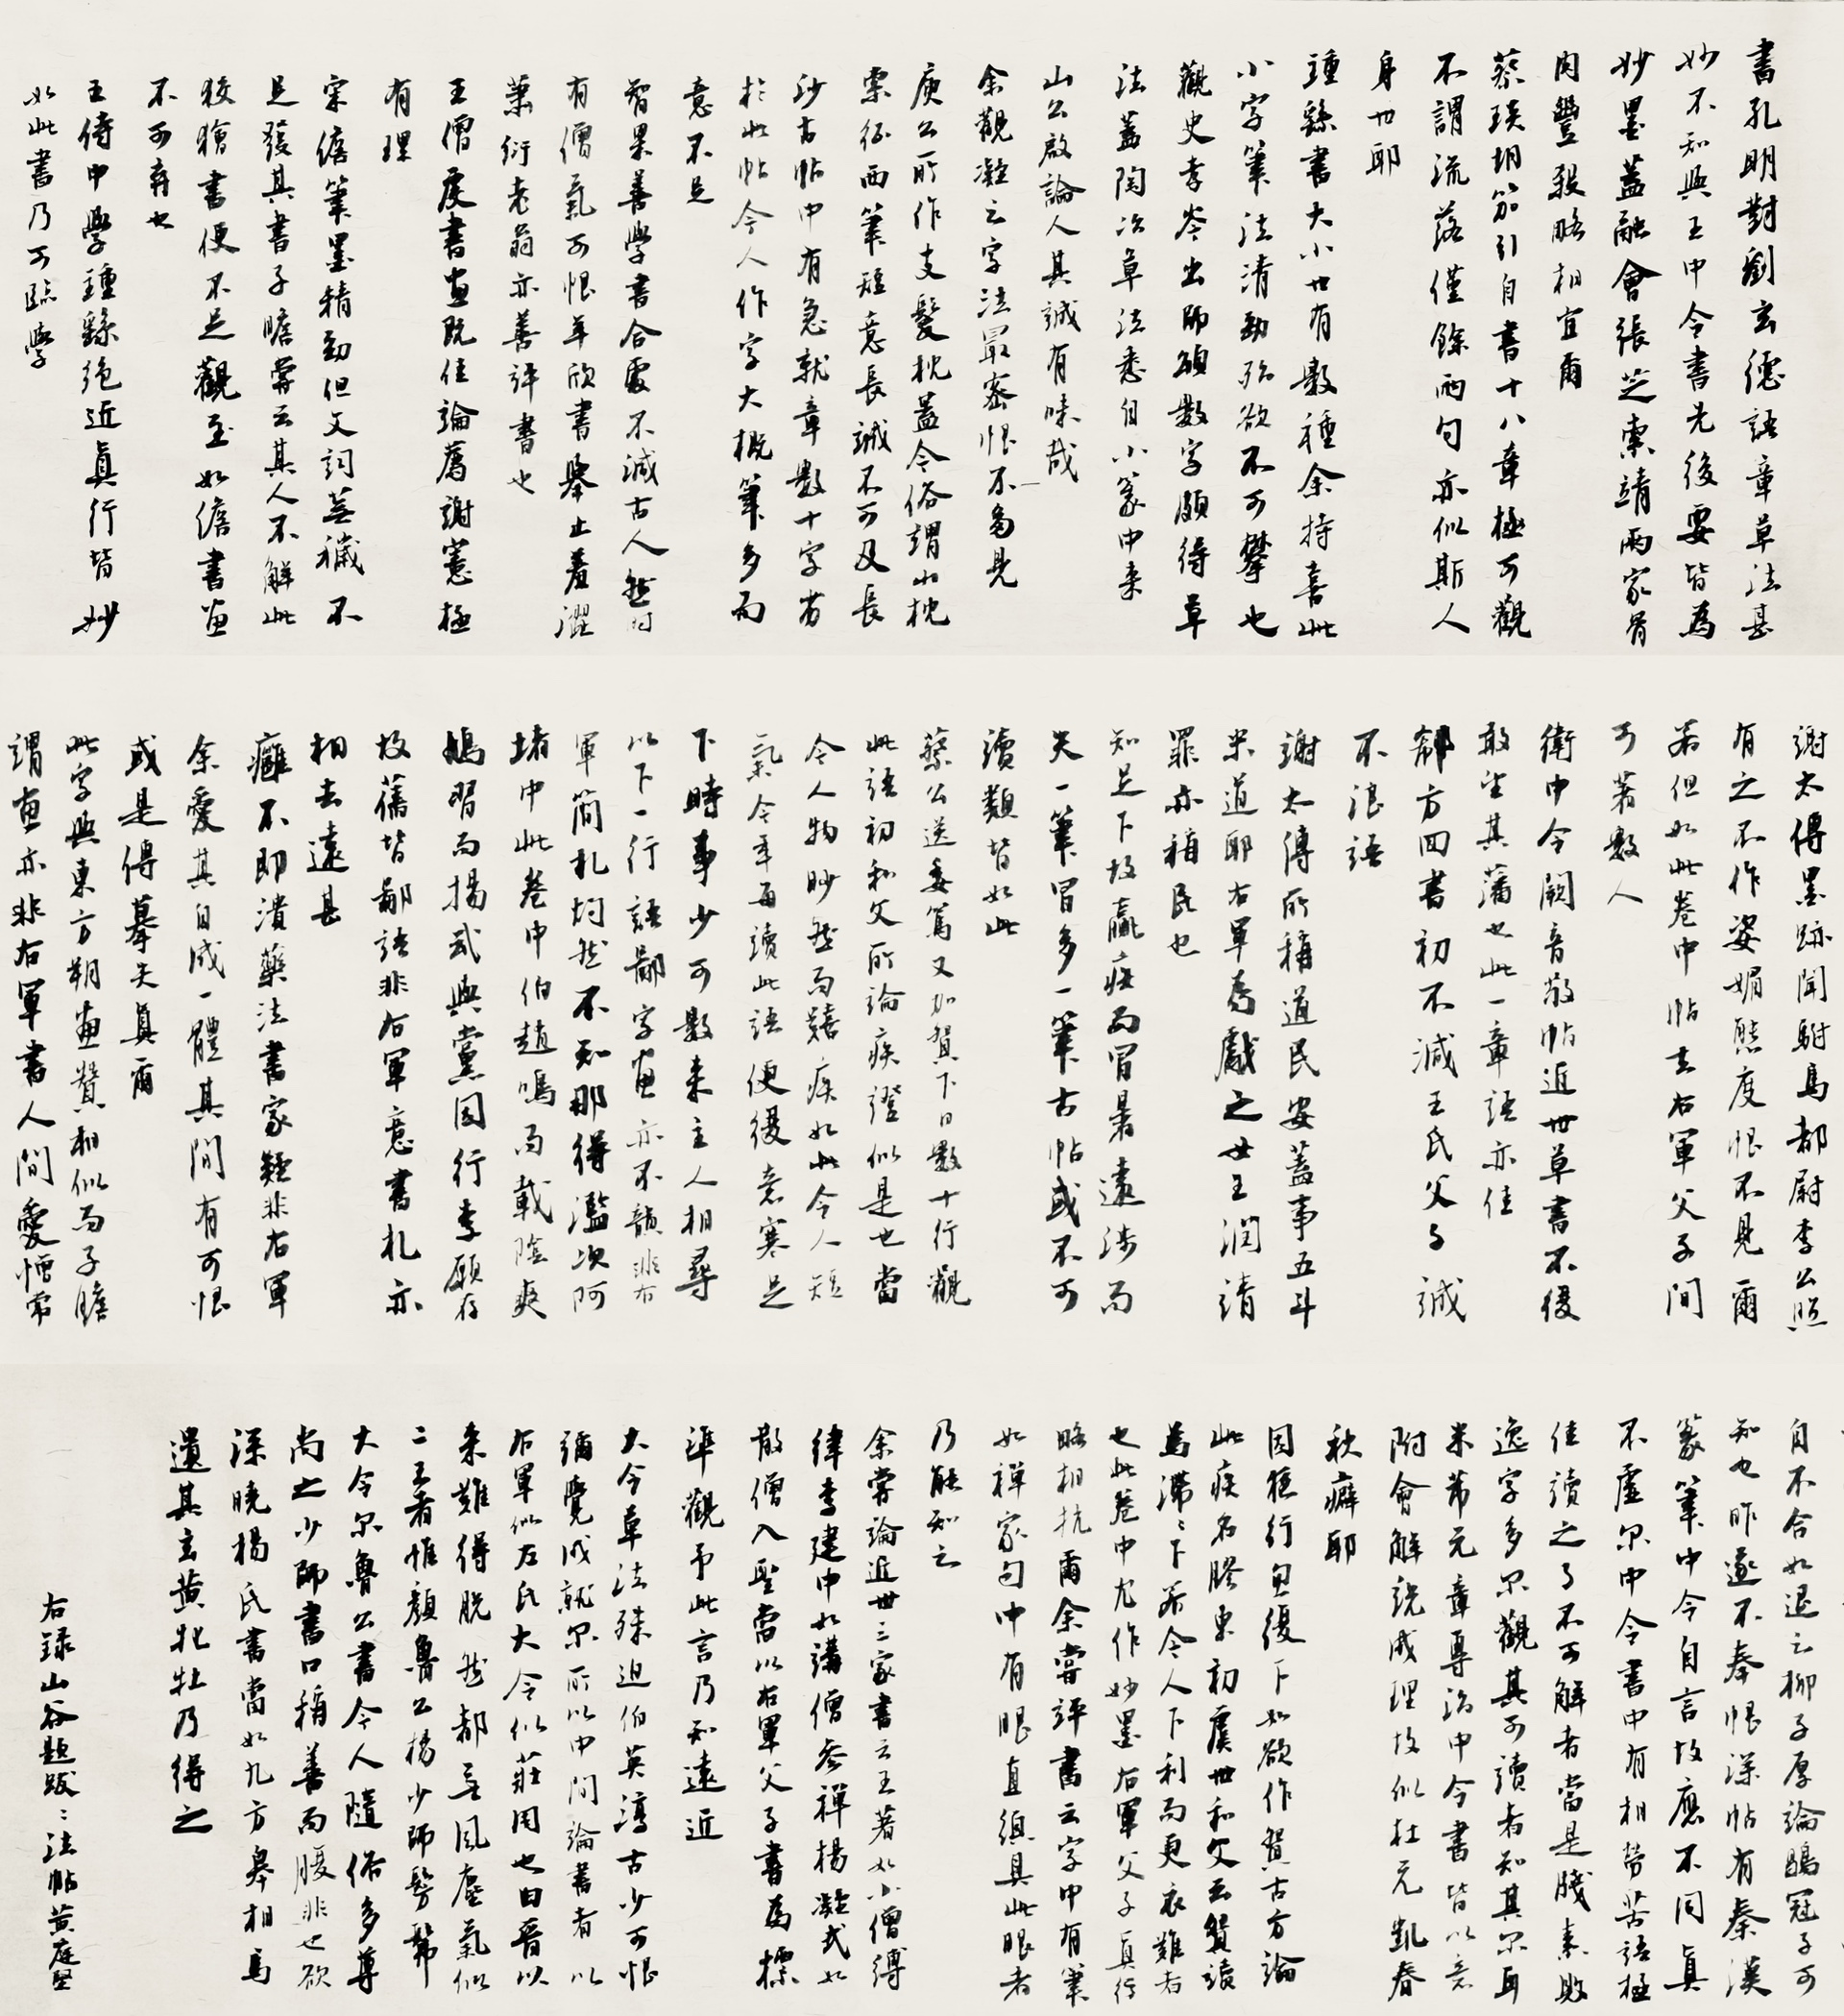 書孔明對劉玄德語章草法甚
妙不知與王中令書先後要皆為
妙墨蓋融會張芝索靖兩家骨
肉豐殺略相宜爾
蔡琰胡笳引自書十八章極可觀
不謂流落僅餘兩句亦似斯人
身世耶
鍾繇書大小世有數種余特喜此
小字筆法清勁殆欲不可攀也
觀史孝岑出師頌數字頗得草
法蓋陶冶草法悉自小篆中来
山公啟論人其誠有味哉
余觀凝之字法最密恨不多見
庾公所作支髮枕蓋今俗謂山枕
索征西筆短意長誠不可及長
沙古帖中有急就章數十字劣
於此帖今人作字大概筆多而
意不足
智果善學書合處不減古人然時
有僧氣可恨羊欣書舉止羞澀
蕭衍老翁亦善評書也
王僧虔書畫既佳論薦謝憲極
有理
宋儋筆墨精勁但文詞蕪穢不
足發其書子瞻嘗云其人不解此
狡獪書便不足觀至如儋書畫
不可棄也
王侍中學鍾繇絕近真行皆妙
如此書乃可臨學
謝太傅墨跡聞駙馬都尉李公照
有之不作姿媚態度恨不見爾
若但如此卷中帖去右軍父子間
可著數人
衛中令闕音敬帖近世草書不復
敢望其藩也此一章語亦佳
郗方回書初不減王氏父子誠
不浪語
謝太傅所稱道民安蓋事五斗
米道耶右軍為獻之世王潤請
罪亦稱民也
知足下故羸疾而冒暑遠涉而
失一筆冒多一筆古帖或不可
讀類皆如此
蔡公送委篤又加貿下日數十行觀
此語初和父所論疾證似是也當
今人物眇然而艱疾如此令人短
氣今年每讀此語便復意塞足
下時事少可數来主人相尋
以下一行語鄙字畫亦不韻非右
軍簡札均然不知那得濫次阿
堵中此卷中伯趙鳴而戴陰爽
鳩習而揚武與黨因行李願存
故舊皆鄙語非右軍意書札亦
相去遠甚
癰不即潰藥法書家疑非右軍
余愛其自成一體其間有可恨
或是傳摹失真爾
此字與東方朔畫贊相似而子瞻
謂畫亦非右軍書人間愛憎常
自不合如退之柳子厚論鶡冠子可
知也昨遂不奉恨深帖有秦漢
篆筆中令自言故應不同真
不虛尔中令書中有相勞苦語極
佳讀之了不可解者當是牋素敗
逸字多尔觀其可讀者知其尔耳
米芾元章專治中令書皆以意
附會解說成理故似杜元凱春
秋癖耶
因穩行匆復下如欲作貿古方論
此疾名膠東初虞世和父云貿讀
為滯滯下乃今人下利而更衣難者
也此卷中尤作妙墨右軍父子真行
略相抗爾余嘗評書云字中有筆
如禪家句中有眼直須具此眼者
乃能知之
余嘗論近世三家書云王著如小僧縛
律李建中如講僧參禪楊凝式如
散僧入聖當以右軍父子書為標
準觀予此言乃知遠近
大令草法殊迫伯英淳古少可恨
彌覺成就尔所以中間論書者以
右軍似左氏大令似莊周也由晉以
来難得脫然都無風塵氣似
二王者惟顏魯公楊少師髣髴
大令尔魯公書今人隨俗多尊
尚之少師書口稱善而腹非也欲
深曉楊氏書當如九方皋相馬
遺其玄黃牝牡乃得之
右録山谷題跋二法帖黄庭堅